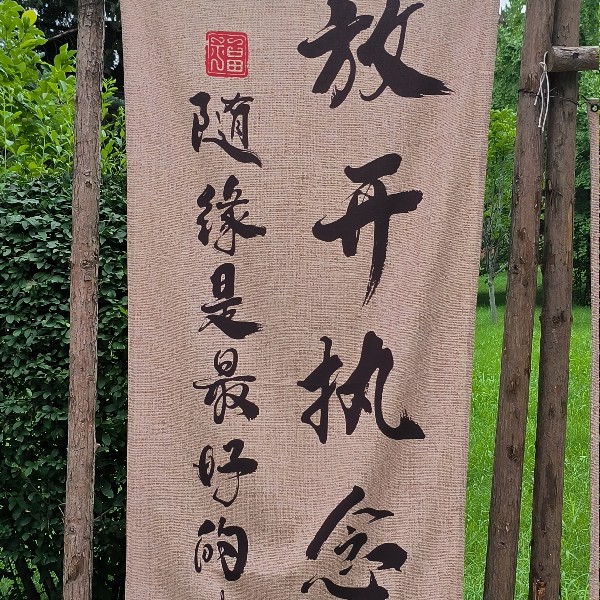 放开执念
随缘是最好的